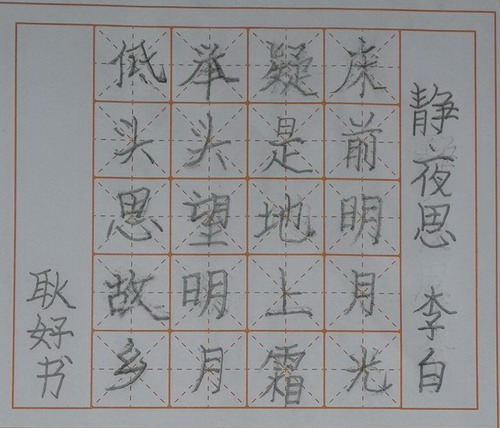 静夜思 李白
床前明月光
疑是地上霜
举头望明月
低头思故乡
耿好书